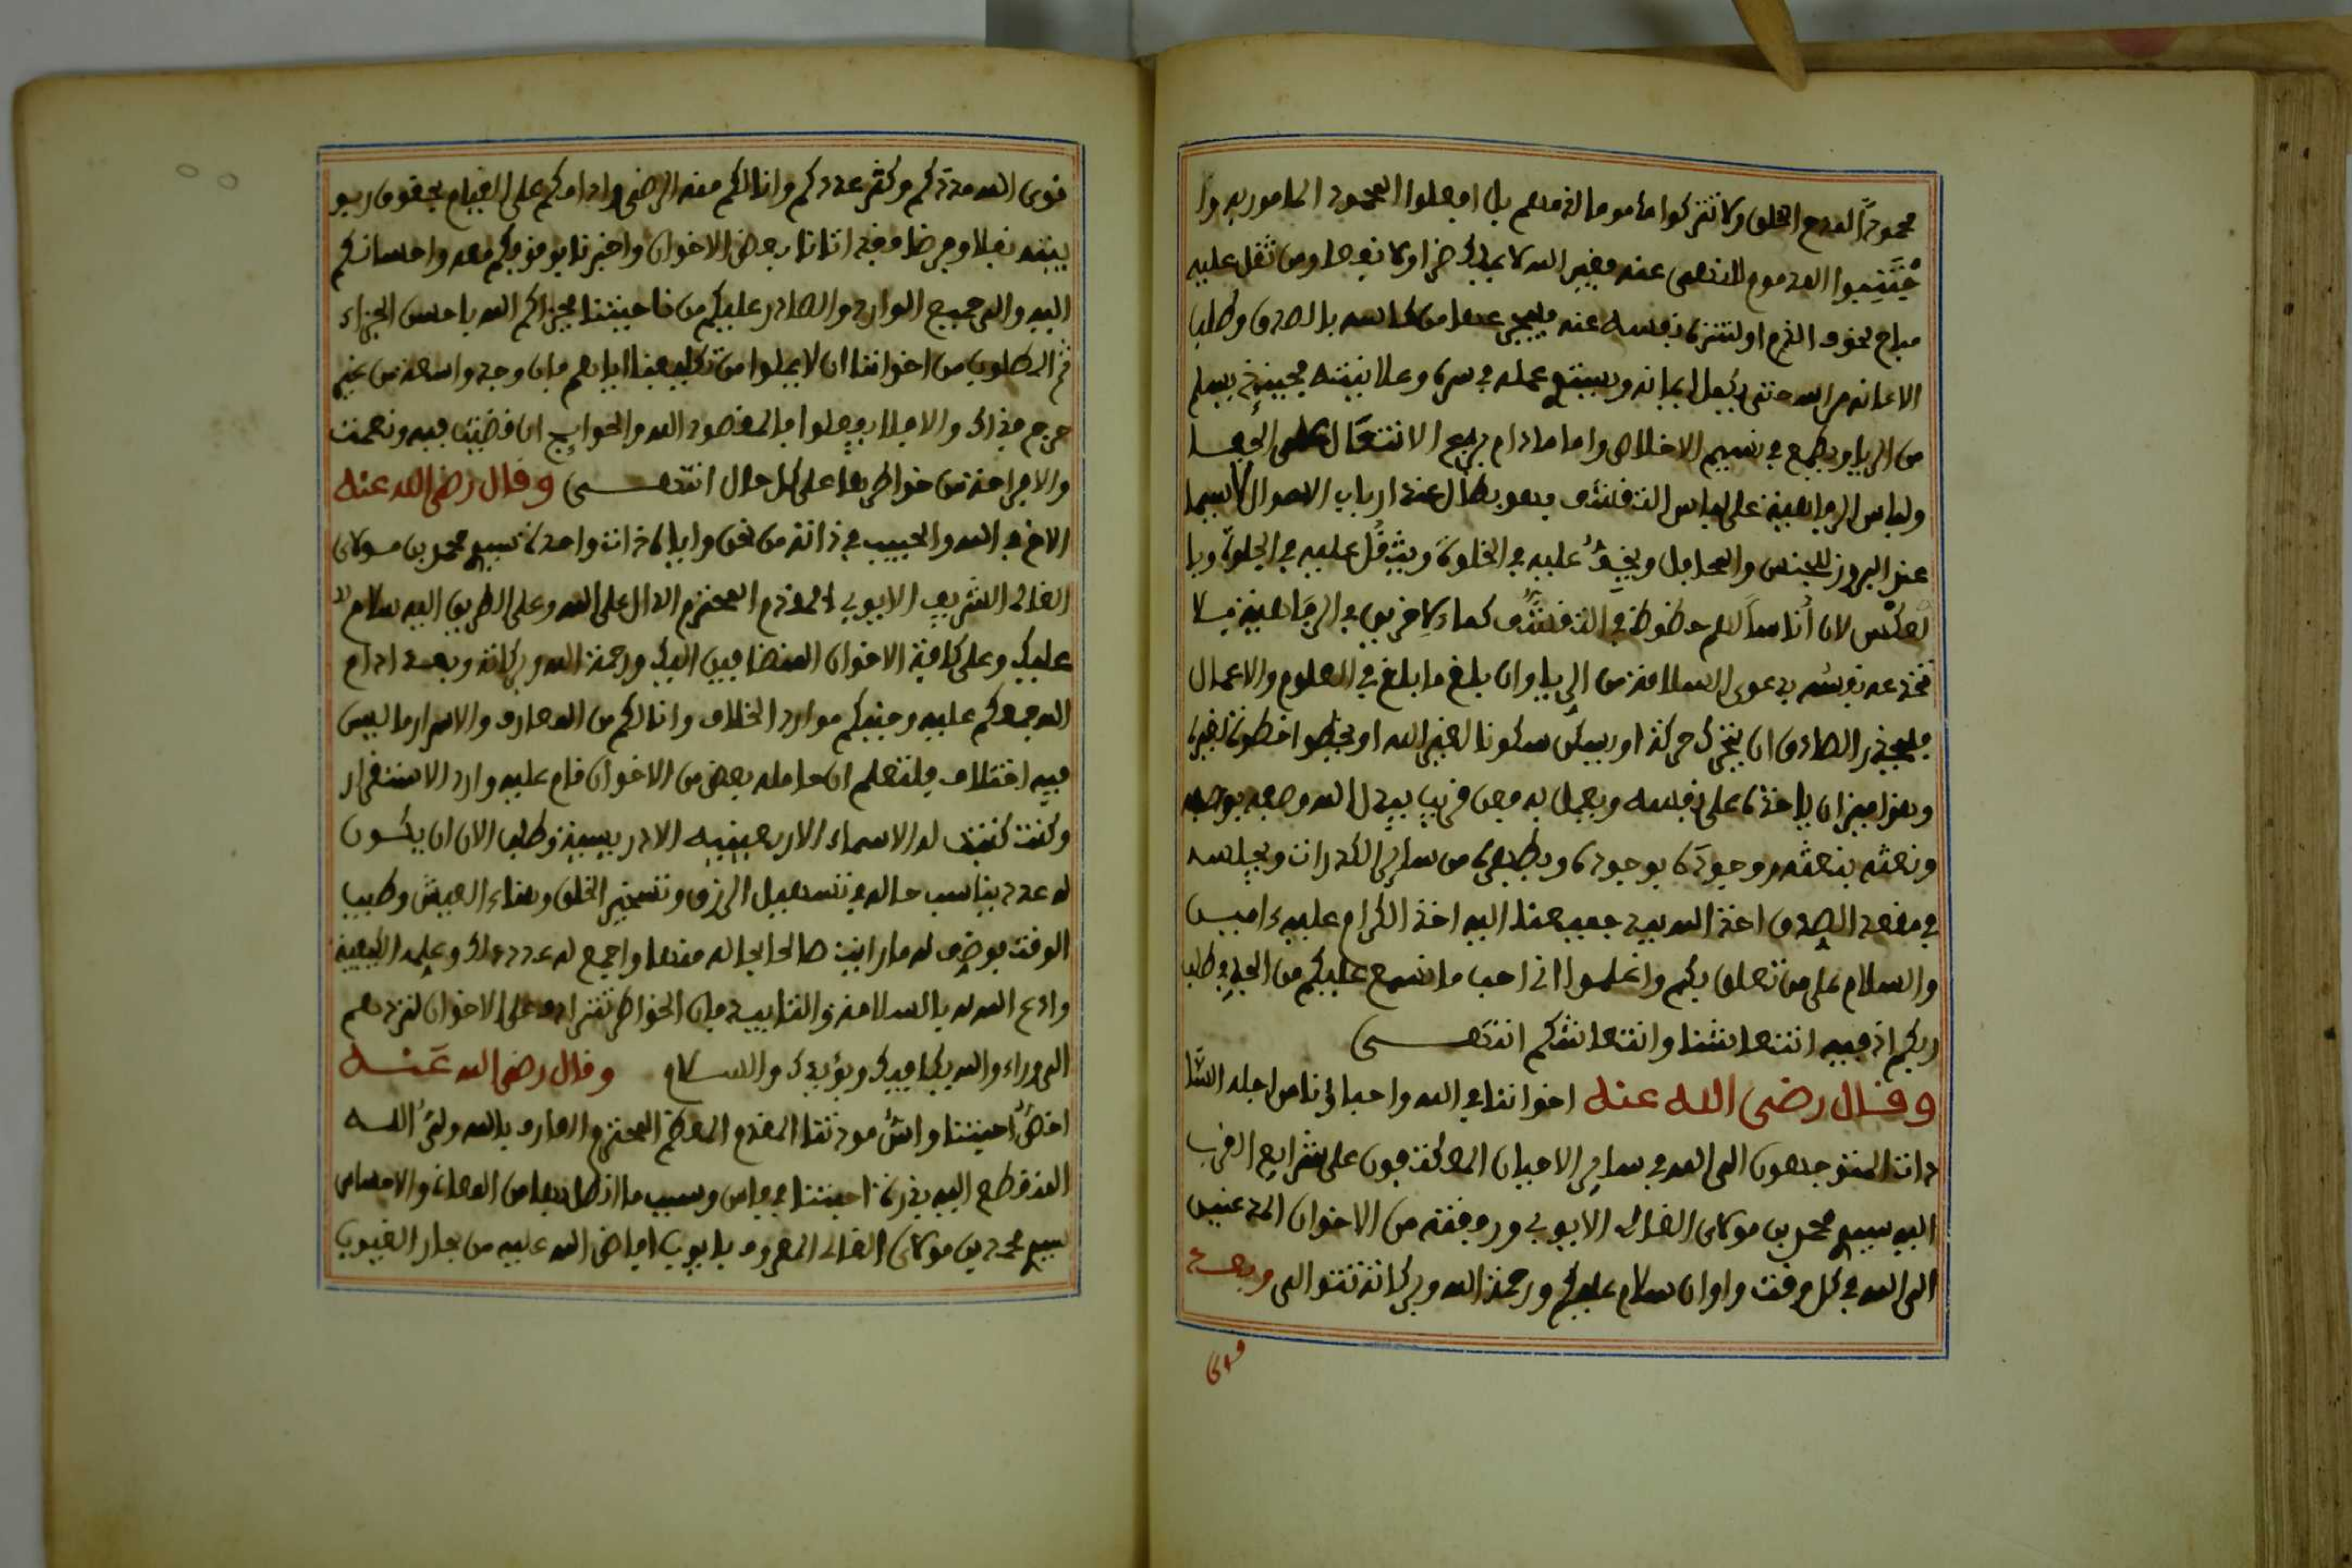 محمودا لمدح الخلق ولا تتركوا مأمورا لذمهم بل افعلوا المحمود المامور به وا
جتنبوا المذموم المنهى عنه فغير الله لا يملك ضرا ولا نفعا ومن ثقل عليه
مباح لخوف الذم او لتنزه نفسه عنه
الاعانة من الله حتى يكمل ايمانه ويستوي عمله في سره وعلانيته فحينئذ يسلم
من الريا ويطمع في نسيم الاخلاص واما مادام يرجع الانتعال على الحفا
ولباس الرفاهية على لباس التقشف فهو بطال عند ارباب الاحوال لا سيما
عند البروز للجنس والمحافل ويخف عليه في الخلوة ويثقل عليه في الجلوة وبا
لعكس لان أناسا لهم حظوظ في التقشف كما ءلاخرين في الرفاهية فلا
تخدعه نفسه بدعوى السلامة من الريا وان بلغ ما بلغ في العلوم والاعمال
فليحذر الصادق ان يتحرك حركة او يسكن سكونا لغير الله او يخطو خطوة لغيره
وهذا ميزان ياخذه على نفسه ويعمل به فعن قريب يبدل الله وصفه بوصفه
ونعته بنعته ووجوده بوجوده ويطهره من سائر الكدرات ويجلسه
في مقعد الصدق اخذ الله بيد جميعنا اليه اخذ الكرام عليه ءامين
والسلام على من تعلق بكم واعلموا انى احب ما نسمع عليكم من الجد في طلب
ربكم اذ فيه انتعاشنا وانتعاشكم انتهـــى
وقال رضى الله عنه اخواننا في الله واحباؤنا من اجله السا
دات المتوجهون الى الله في سائر الاحيان المعتكفون على شرايع القرب
اليه سيدي محمد بن مولاى الغالى الايوبي ورفقته من الاخوان المذعنين
الى الله في كل وقت واوان سلام عليكم ورحمة الله وبركاته تتوالى وبعد
قوى الله مددكم وكثر عددكم وانالكم منه الرضى وادامكم على القيام بحقوق ربو
بيته نفلا وفرضا فقد اتانا بعض الاخوان واخبرنا بوقوفكم معه واحسانكم
اليه والى جميع الوارد والصادر عليكم من ناحيتنا فجزاكم الله باحسن الجزاء
ثم المطلوب من اخواننا ان لا يملوا من تكليفنا اياهم فان وجد واسعة من غير
حرج فذاك والا فلا يفعلوا فالمقصود الله والحوايج ان قضيت فبه ونعمت
والا فراحة من خواطرها على كل حال انتهـــى وقال رضى الله عنه
الاخ في الله والحبيب في ذاته من نحن واياه ذات واحدة سيدي محمد بن مولاى
الغالى الشريف الايوبي المقدم المحترم الدال على الله وعلى الطريق اليه سلام
عليك وعلى كافة الاخوان المنضافين اليك ورحمة الله وبركاته وبعد ادام
الله جمعكم عليه وجنبكم موارد الخلاف وانالكم من المعارف والاسرار ما ليس
فيه اختلاف فلتعلم ان حامله بعض من الاخوان قام عليه وارد الاستغفار
وكنت كتبت له الاسماء الاربعينيه الادريسية وطلب الان ان يكون
له عدد يناسب حاله في تسهيل الرزق وتسخير الخلق وهناء العيش وطيب
الوقت فوضف له ما رايت صالحا بحاله منها واجمع له عدد ذلك وعلمه الكيفية
وادع الله له بالسلامة والتاييد فان الخواطر تترادف على الاخوان لتردهم
الى وراء والله يكافيك ويؤيدك والســـلام وقال رضى الله عنـه
اخص احبتنا واش مودتنا المقدم المعظم المحترم العارف بالله ولي اللـه
المنقطع اليه بذرة احبتنا في فاس وسبب ما انطل بها من المعان والاحساس
سيدي محمد بن مولاى الغالى المعروف بايوب افاض الله عليه من بحار الغيوب